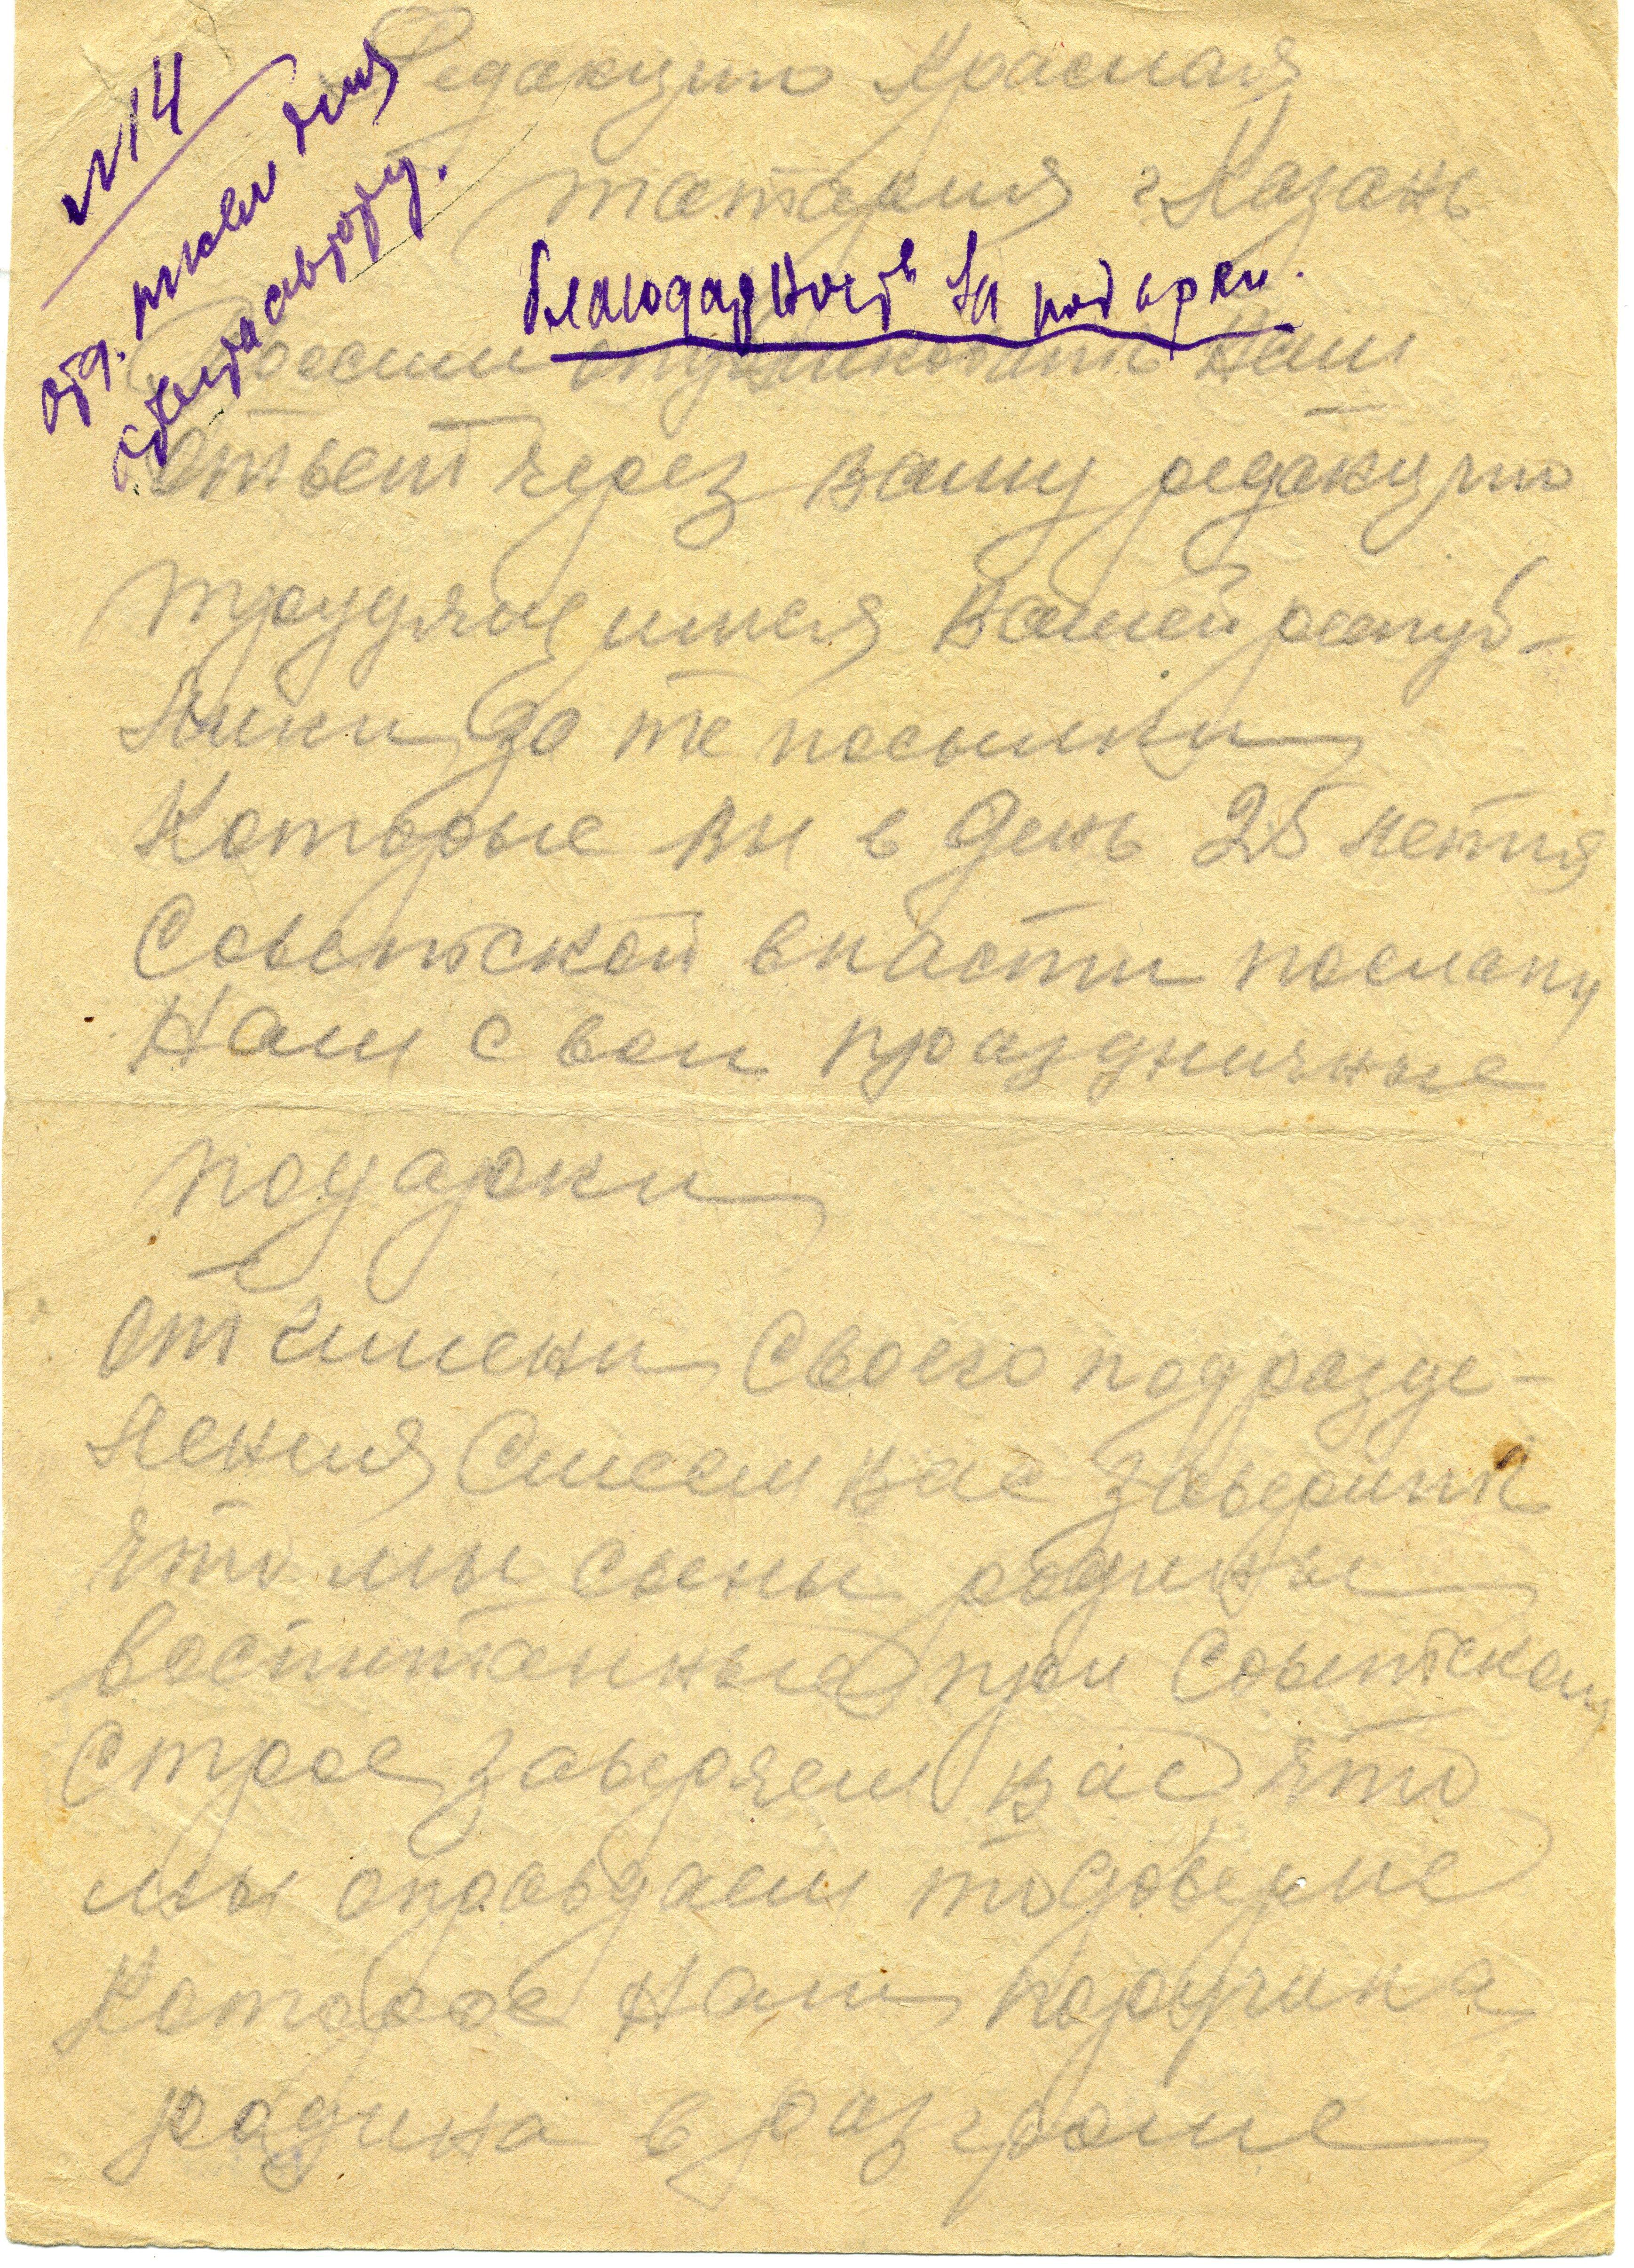 №14
отд. писем для
ответа автору.
Редакцию Красная
татария г Казань
благодарность за подарки.
Просим опубликовать Наш
ответ через вашу редакцию
трудящимся Вашей респуб-
лики за те посылки
Которые вы в День 25 летия
Советской власти послали
Нам свои праздничные
подарки
от имени Своего подразде-
ления Смеем вас заверить
что мы сыны родины
воспитанные при Советском
строе заверяем вас что
мы оправдаем то доверие
Которое Нам поручила
родина в разгроме